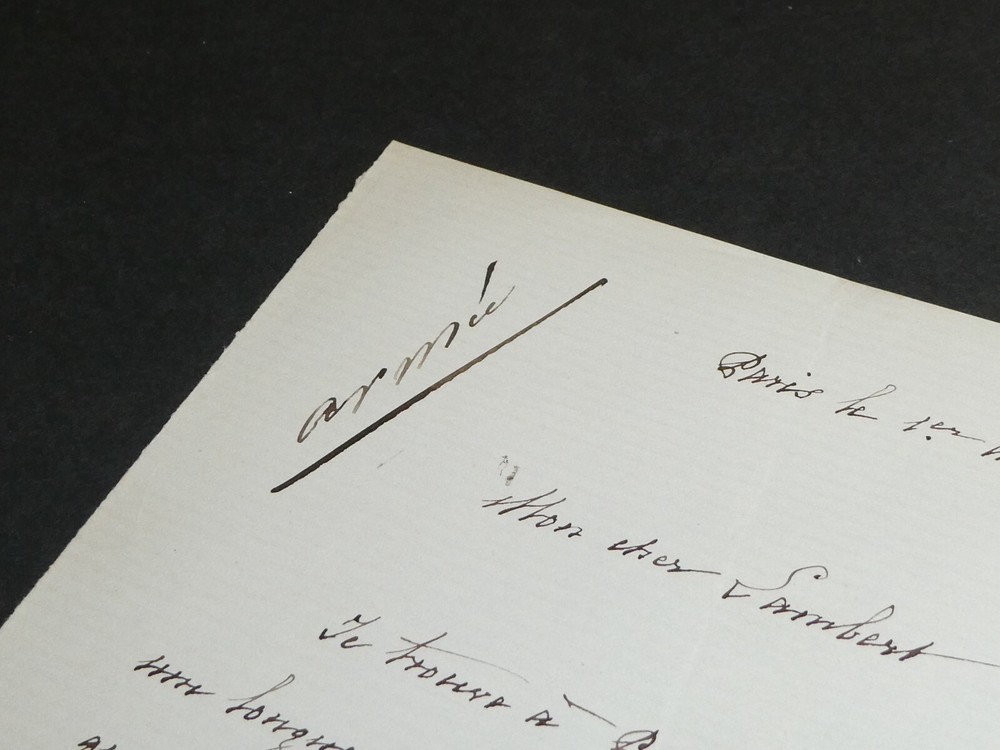 armée
Paris le 1er
Mon cher Lambert
Je trouve à
une longue